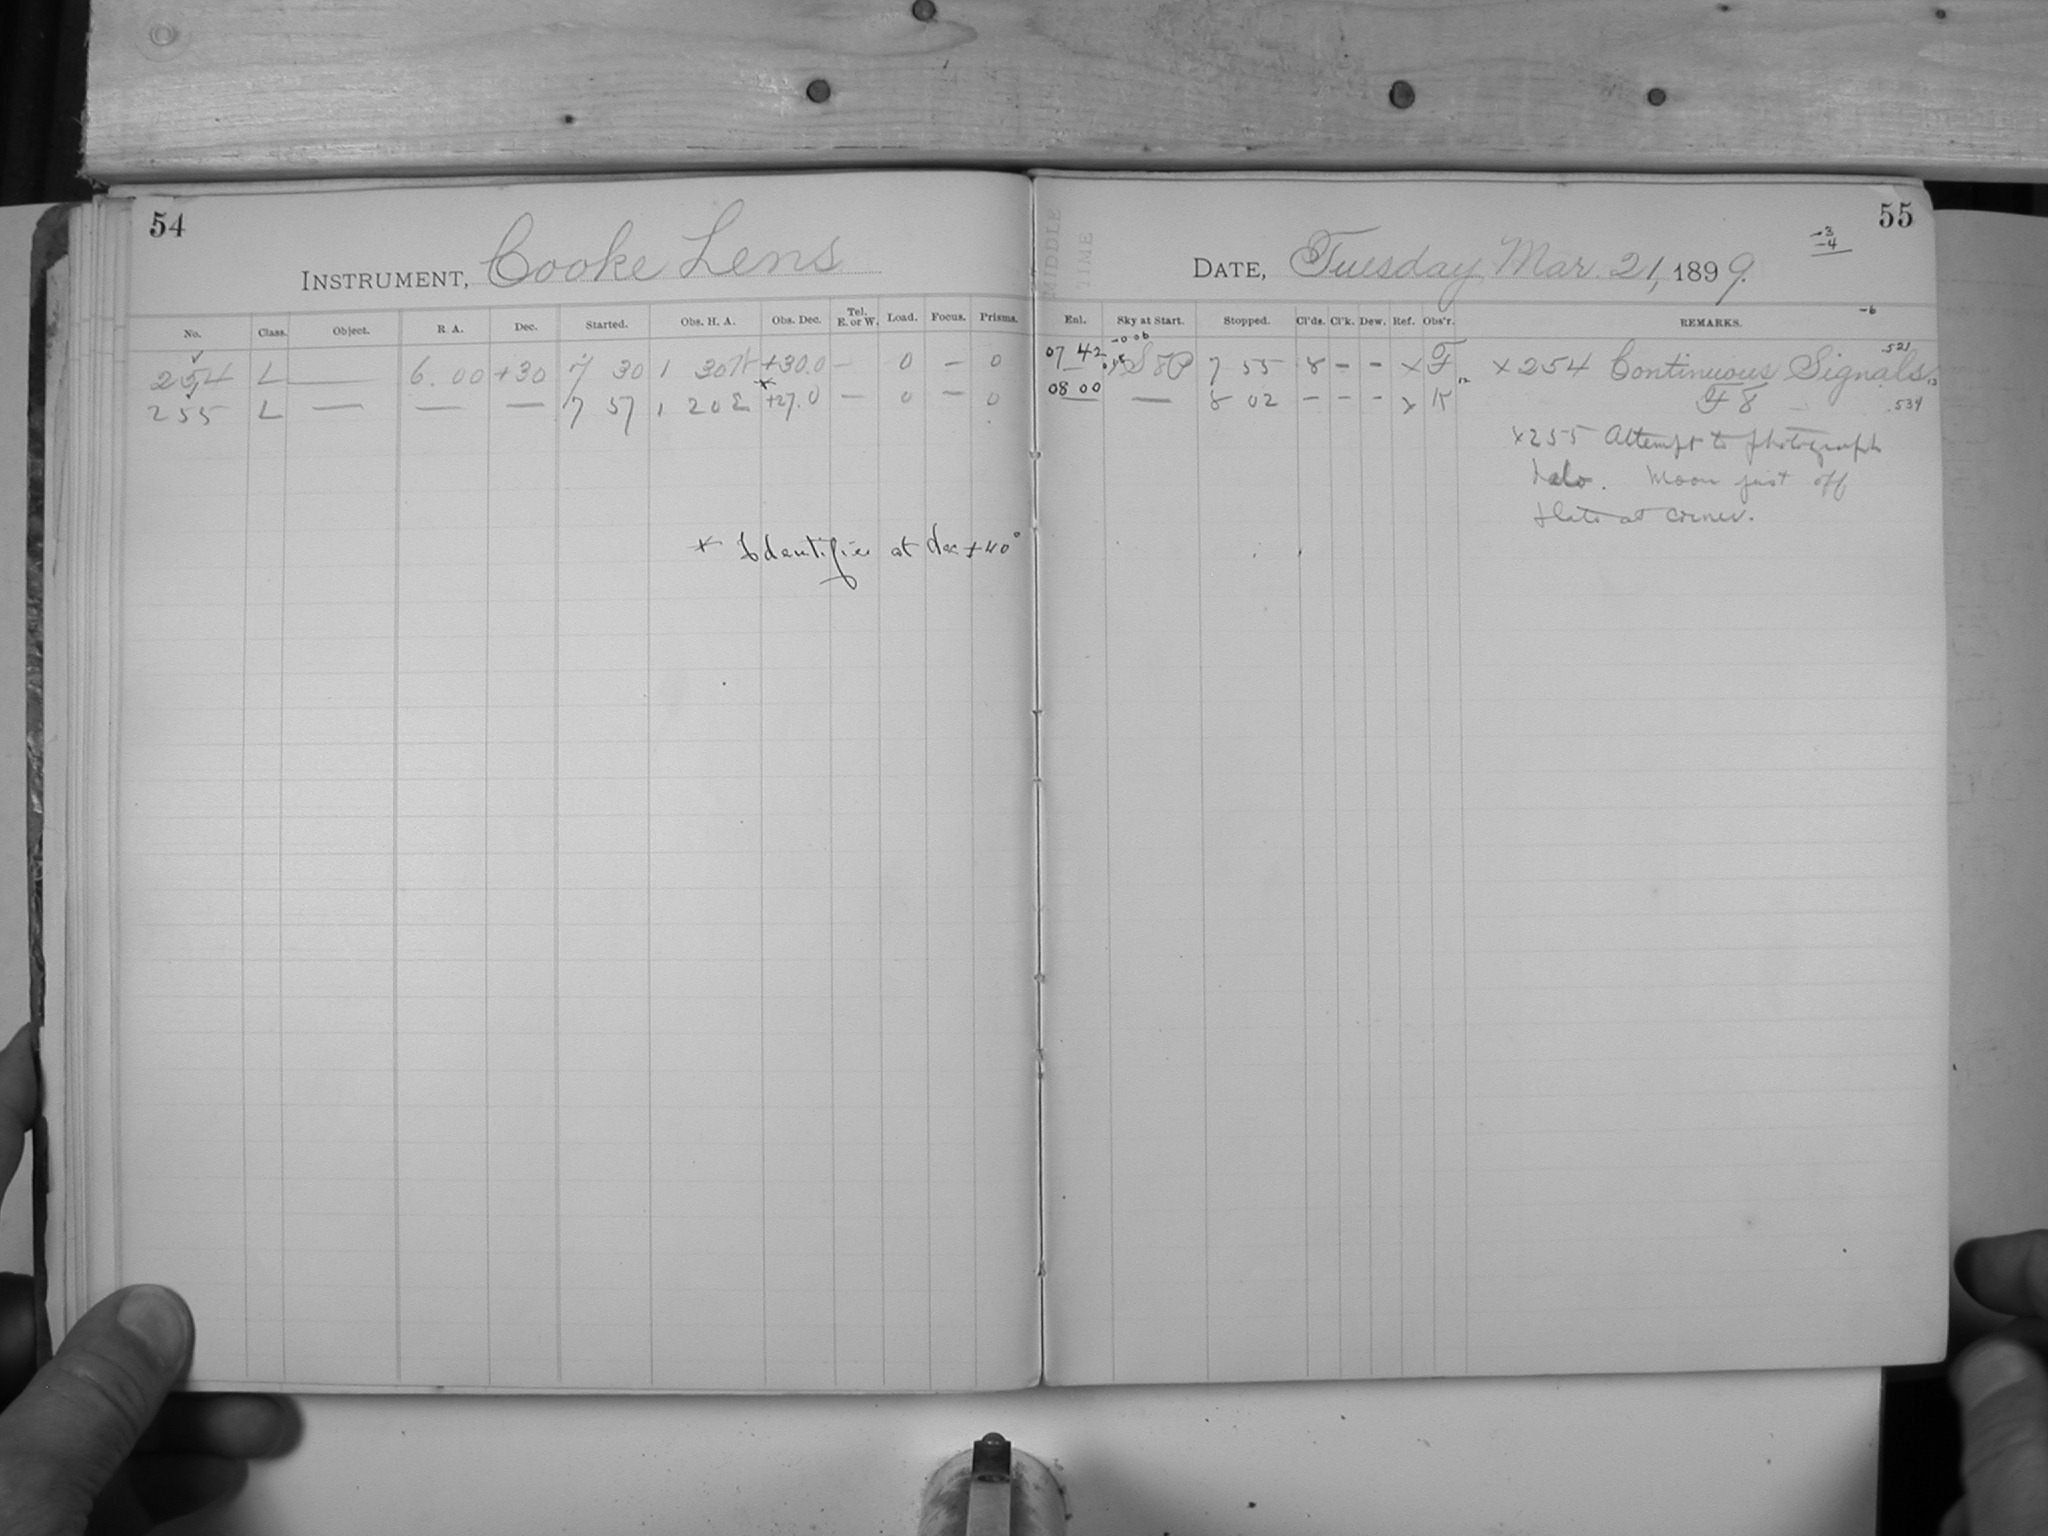 54
INSTRUMENT, Cooke Lens
No. Class. Object. R. A. Dec. Started. Obs. H. A. Obs. Dec. Tel. E. or W. Load. Focus. Prisms.
254 L — 6.00 +30 7 30 1 30W +30.0 — 0 — 0
255 L — — — 7 57 1 20E +27.0 — 0 — 0
* Identifies at dec +40°
55
-3
-4
MIDDLE TIME
DATE, Tuesday Mar. 21, 1899.
-6
Enl. Sky at Start. Stopped. Cl'ds. Cl'k. Dew. Ref. Obs'r. REMARKS.
07 42 7 55 8 - - x F x254 Continuous Signals .521
08 00 — 8 02 - - - x K F 8 .534
x255 Attempt to photograph
halo. Moon just off
plate at corner.